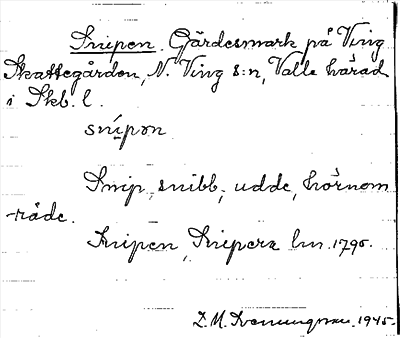 Snipen. Gärdesmark på Ving
Skattegården, N. Ving s:n, Valle härad
i Skb. l.
snípən
Snip, snibb, udde, hörnom-
råde.
Snipen, Snipera lm. 1795.
1945.